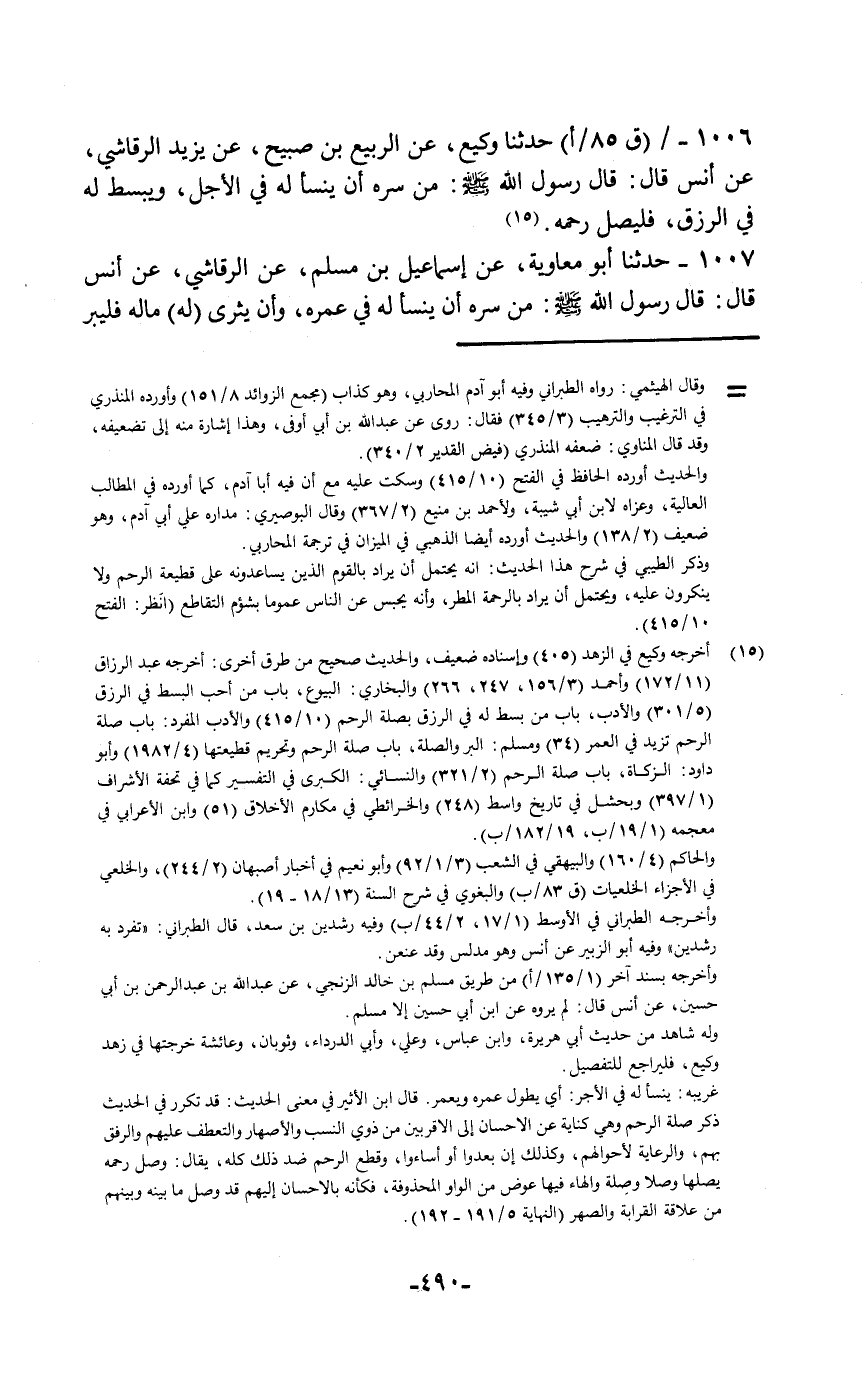 ١٠٠٦ - / (ق ٨٥/أ) حدثنا وكيع، عن الربيع بن صبيح، عن يزيد الرقاشي،
عن أنس قال: قال رسول الله ﷺ: من سره أن ينسأ له في الأجل، ويبسط له
في الرزق، فليصل رحمه. (١٥)
١٠٠٧ - حدثنا أبو معاوية، عن إسماعيل بن مسلم، عن الرقاشي، عن أنس
قال: قال رسول الله ﷺ: من سره أن ينسأ له في عمره، وأن يثرى (له) ماله فليبر
= وقال الهيثمي: رواه الطبراني وفيه أبو آدم المحاربي، وهو كذاب (مجمع الزوائد ٨/١٥١) وأورده المنذري
في الترغيب والترهيب (٣/٣٤٥) فقال: روى عن عبدالله بن أبي أوفى، وهذا إشارة منه إلى تضعيفه،
وقد قال المناوي: ضعفه المنذري (فيض القدير ٢/٣٤٠).
والحديث أورده الحافظ في الفتح (١٠/٤١٥) وسكت عليه مع أن فيه أبا آدم، كما أورده في المطالب
العالية، وعزاه لابن أبي شيبة، ولأحمد بن منيع (٢/٣٦٧) وقال البوصيري: مداره علي أبي آدم، وهو
ضعيف (٢/١٣٨) والحديث أورده أيضا الذهبي في الميزان في ترجمة المحاربي.
وذكر الطيبي في شرح هذا الحديث: انه يحتمل أن يراد بالقوم الذين يساعدونه على قطيعة الرحم ولا
ينكرون عليه، ويحتمل أن يراد بالرحمة المطر، وأنه يحبس عن الناس عموما بشؤم التقاطع (انظر: الفتح
١٠/٤١٥).
(١٥) أخرجه وكيع في الزهد (٤٠٥) وإسناده ضعيف، والحديث صحيح من طرق أخرى: أخرجه عبد الرزاق
(١١/١٧٢) وأحمد (٣/١٥٦، ٢٤٧، ٢٦٦) والبخاري: البيوع، باب من أحب البسط في الرزق
(٥/٣٠١) والأدب، باب من بسط له في الرزق بصلة الرحم (١٠/٤١٥) والأدب المفرد: باب صلة
الرحم تزيد في العمر (٣٤) ومسلم: البر والصلة، باب صلة الرحم وتحريم قطيعتها (٤/١٩٨٢) وأبو
داود: الزكاة، باب صلة الرحم (٢/٣٢١) والنسائي: الكبرى في التفسير كما في تحفة الأشراف
(١/٣٩٧) وبحشل في تاريخ واسط (٢٤٨) والخرائطي في مكارم الأخلاق (٥١) وابن الأعرابي في
معجمه (١/١٩/ب، ١٨٢/١٩/ب).
والحاكم (٤/١٦٠) والبيهقي في الشعب (٣/١/٩٢) وأبو نعيم في أخبار أصبهان (٢/٢٤٤)، والخلعي
في الأجزاء الخلعيات (ق ٨٣/ب) والبغوي في شرح السنة (١٣/١٨ - ١٩).
وأخرجه الطبراني في الأوسط (١/١٧، ٢/٤٤/ب) وفيه رشدين بن سعد، قال الطبراني: «تفرد به
رشدين» وفيه أبو الزبير عن أنس وهو مدلس وقد عنعن.
وأخرجه بسند آخر (١/١٣٥/أ) من طريق مسلم بن خالد الزنجي، عن عبدالله بن عبدالرحمن بن أبي
حسين، عن أنس قال: لم يروه عن ابن أبي حسين إلا مسلم.
وله شاهد من حديث أبي هريرة، وابن عباس، وعلي، وأبي الدرداء، وثوبان، وعائشة خرجتها في زهد
وكيع، فليراجع للتفصيل.
غريبه: ينسأ له في الأجر: أي يطول عمره ويعمر. قال ابن الأثير في معنى الحديث: قد تكرر في الحديث
ذكر صلة الرحم وهي كناية عن الاحسان إلى الاقربين من ذوي النسب والأصهار والتعطف عليهم والرفق
بهم، والرعاية لأحوالهم، وكذلك إن بعدوا أو أساءوا، وقطع الرحم ضد ذلك كله، يقال: وصل رحمه
يصلها وصلا وصِلة والهاء فيها عوض من الواو المحذوفة، فكأنه بالاحسان إليهم قد وصل ما بينه وبينهم
من علاقة القرابة والصهر (النهاية ٥/١٩١ - ١٩٢).
-٤٩٠-